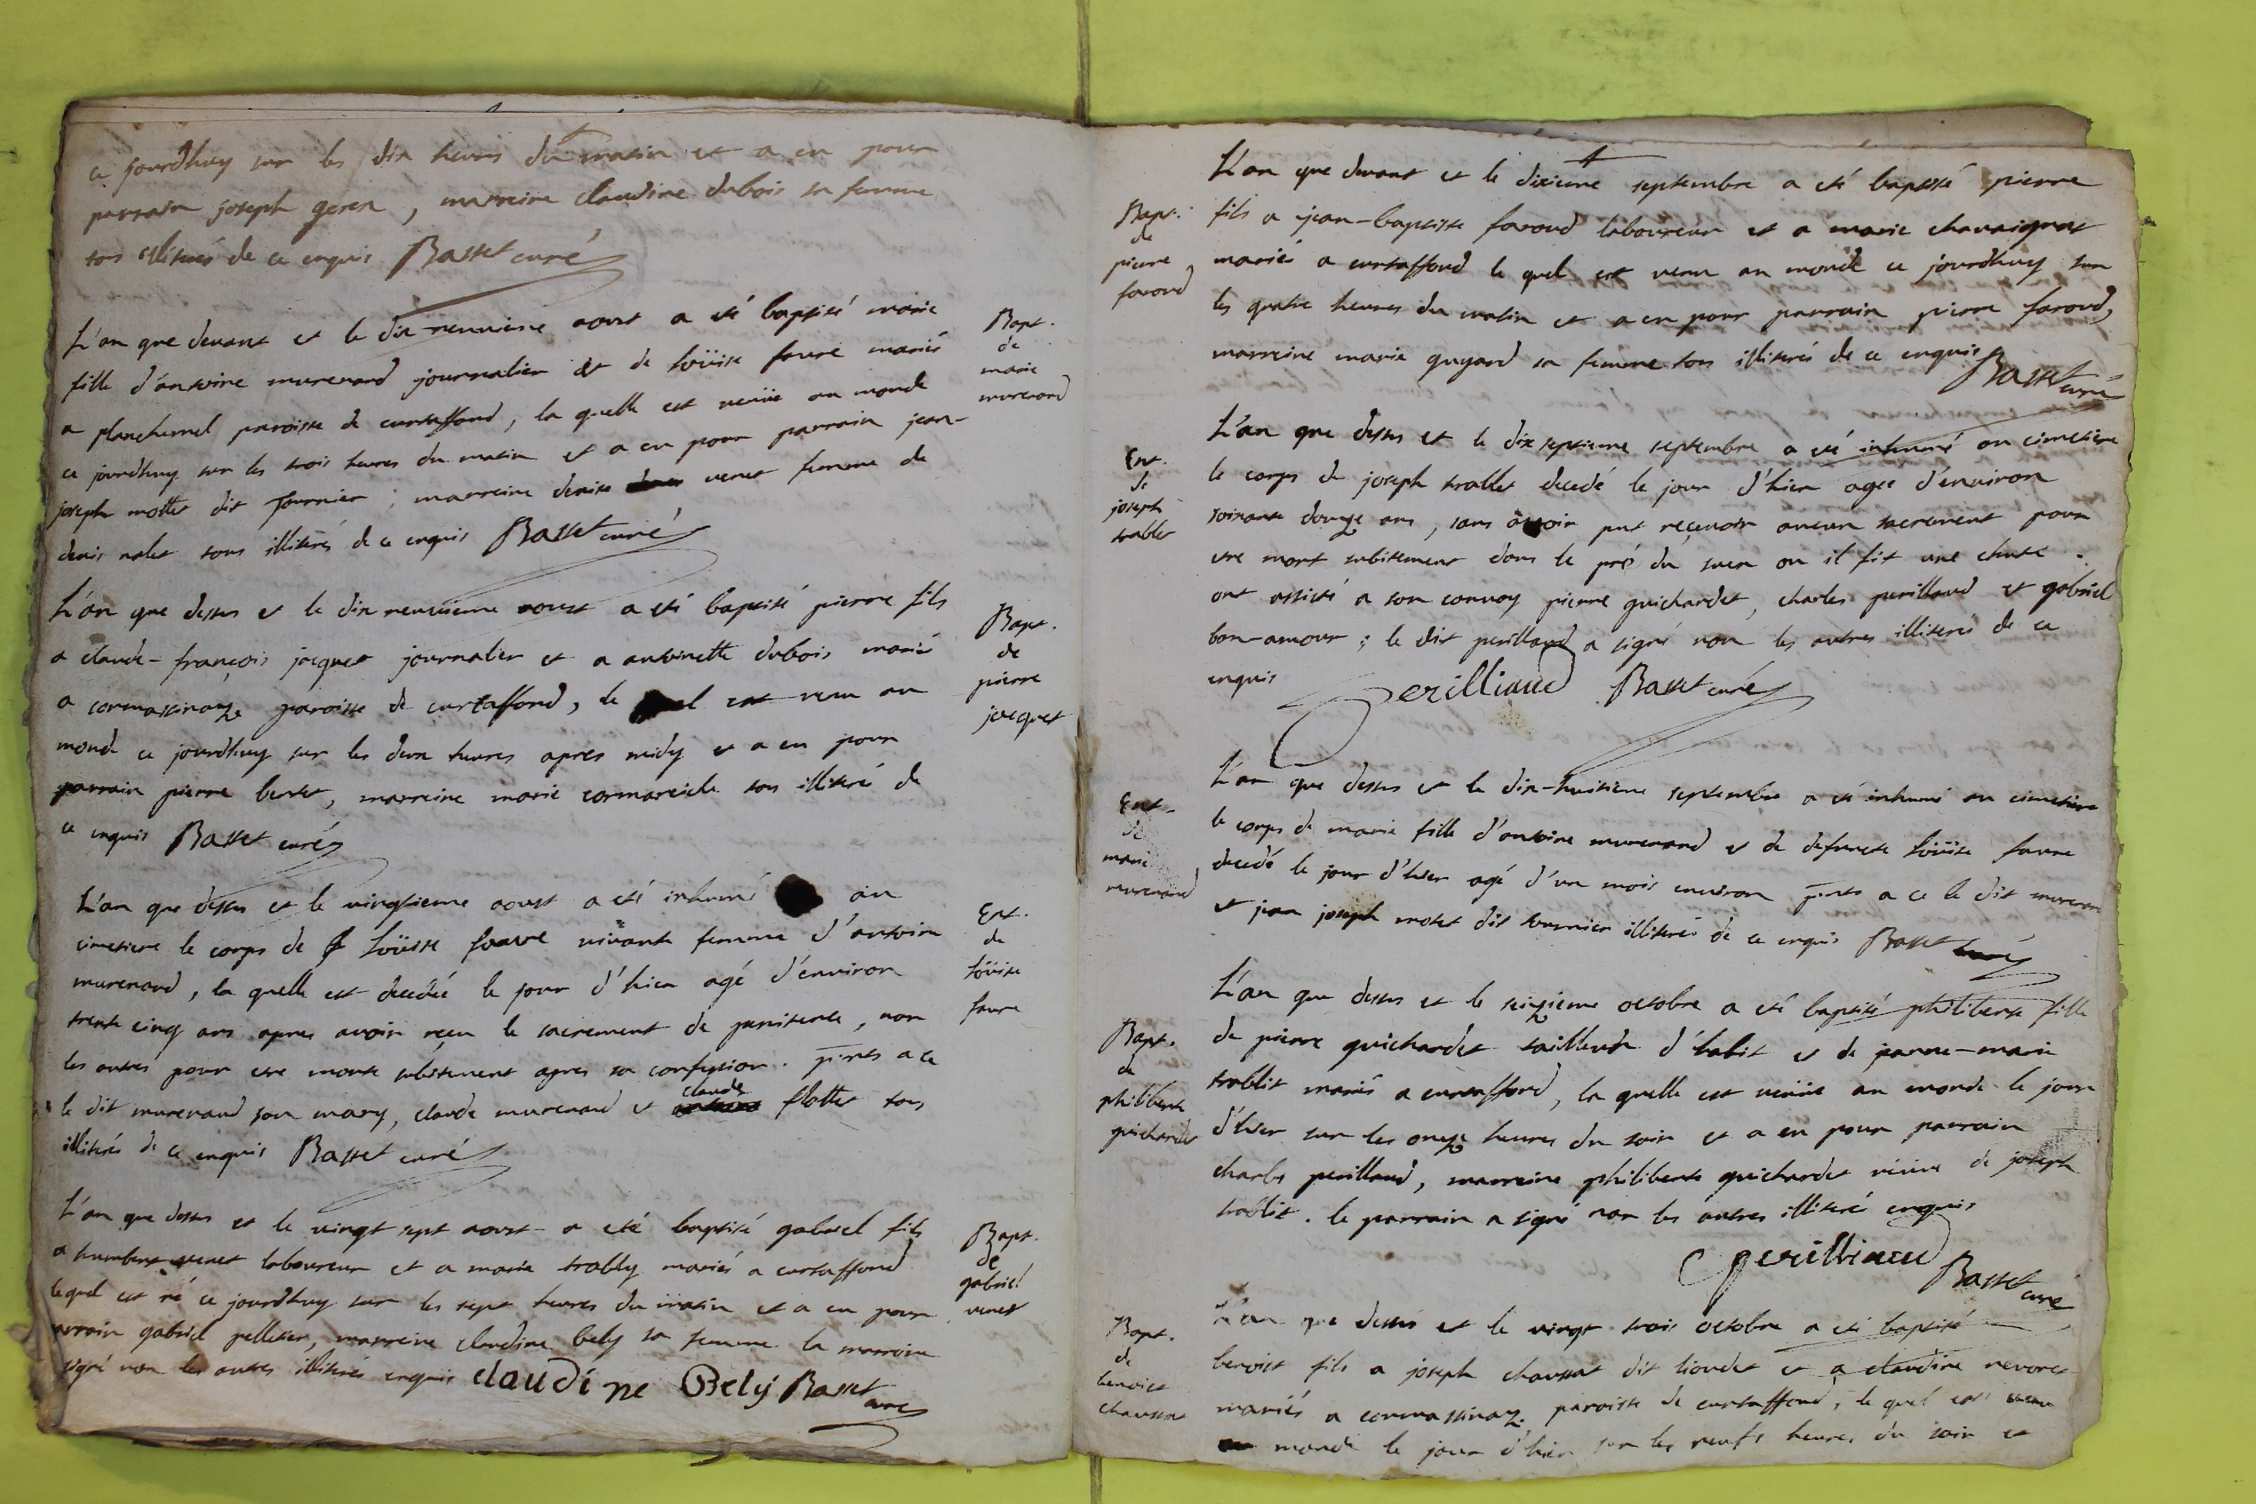 ce jourdhuy sur les dix heures du matin et a eu pour
parrain joseph geren, marreine claudine dubois sa femme
tous illiterés de ce enquis Basset curé
L'an que devant et le dix neuvième aoust a eté baptisé marie
fille d'antoine murenard journalier et de loüise faure mariés
a planchernel paroisse de curtaffond, la quelle est venüe au monde
ce jourdhuy sur les trois heures du matin et a eu pour parrain jean-
joseph mottet dit fournier; marreine denise venet femme de
denis nalet tous illiterés de ce enquis Basset curé
Bapt.
de
marie
murenard
L'an que dessus et le dix neuvieme aoust a eté baptisé pierre fils
a claude-françois jacquet journalier et a antoinette dubois mariés
a cormassinaz paroisse de curtaffond, le quel est venu au
monde ce jourdhuy sur les deux heures apres midy et a eu pour
parrain pierre bertet, marreine marie cormareiche tous illiteré de
ce enquis Basset curé
Bapt.
de
pierre
jacquet
L'an que dessus et le vingtieme aoust a eté inhumé au
cimetiere le corps de loüise faure vivante femme d'antoine
murenard, la quelle est decedée le jour d'hier agé d'environ
trente cinq ans apres avoir reçu le sacrement de penitence, non
les autres pour etre morte subitement apres sa confession. pnts a ce
le dit murenard son mary, claude murenard et claude flottet tous
illiterés de ce enquis Basset curé
Ent.
de
loüise
faure
L'an que dessus et le vingt sept aoust a eté baptisé gabriel fils
a humbert venet laboureur et a marie trably mariés a curtaffond
lequel est né ce jourdhuy sur les sept heures du matin et a eu pour
parrain gabriel pelletier, marreine claudine bely sa femme la marreine
signé non les autres illiterés enquis claudine Bely Basset curé
Bapt.
de
gabriel
venet
L'an que devant et le dixieme septembre a eté baptisé pierre
fils a jean-baptiste faroud laboureur et a marie chavaignat
mariés a curtaffond le quel est venu au monde ce jourdhuy sur
les quatre heures du matin et a eu pour parrain pierre faroud,
marreine marie guyard sa femme tous illiterés de ce enquis
Basset curé
Bapt.
de
pierre
faroud
L'an que dessus et le dix septieme septembre a eté inhumé au cimetiere
le corps de joseph trablet decedé le jour d'hier agée d'environ
soixante douze ans, sans avoir put reçevoir aucun sacrement pour
etre mort subitement dans le pré du suen ou il fit une chute.
ont assisté a son convoy pierre guichardet, charles perilland et gabriel
bon-amour; le dit perilland a signé non les autres illiterés de ce
enquis Perilliaud Basset curé
Ent.
de
joseph
trablet
L'an que dessus et le dix-huitieme septembre a eté inhumé au cimetiere
le corps de marie fille d'antoine murenard et de defuncte loüise faure
decedé le jour d'hier agé d'un mois environ pnts a ce le dit murenard
et jean joseph motet dit fournier illiterés de ce enquis Basset curé
Ent.
de
marie
murenard
L'an que dessus et le seizieme octobre a eté baptisé philiberte fille
de pierre guichardet tailleur d'habit et de jeanne-marie
trablit mariés a curtaffond, la quelle est venüe au monde le jour
d'hier sur les onze heures du soir et a eu pour parrain
charles perilland, marreine philiberte guichardet veuve de joseph
trablit. le parrain a signé non les autres illiteré enquis
Perilliaud
Basset curé
Bapt.
de
philiberte
guichardet
L'an que dessus et le vingt trois octobre a eté baptisé
benoist fils a joseph chaussat dit lioudet et a claudine nevoret
mariés a cormassinaz paroisse de curtaffond, le quel est venu
au monde le jour d'hier sur les neufs heures du soir et
Bapt.
de
benoist
chaussat